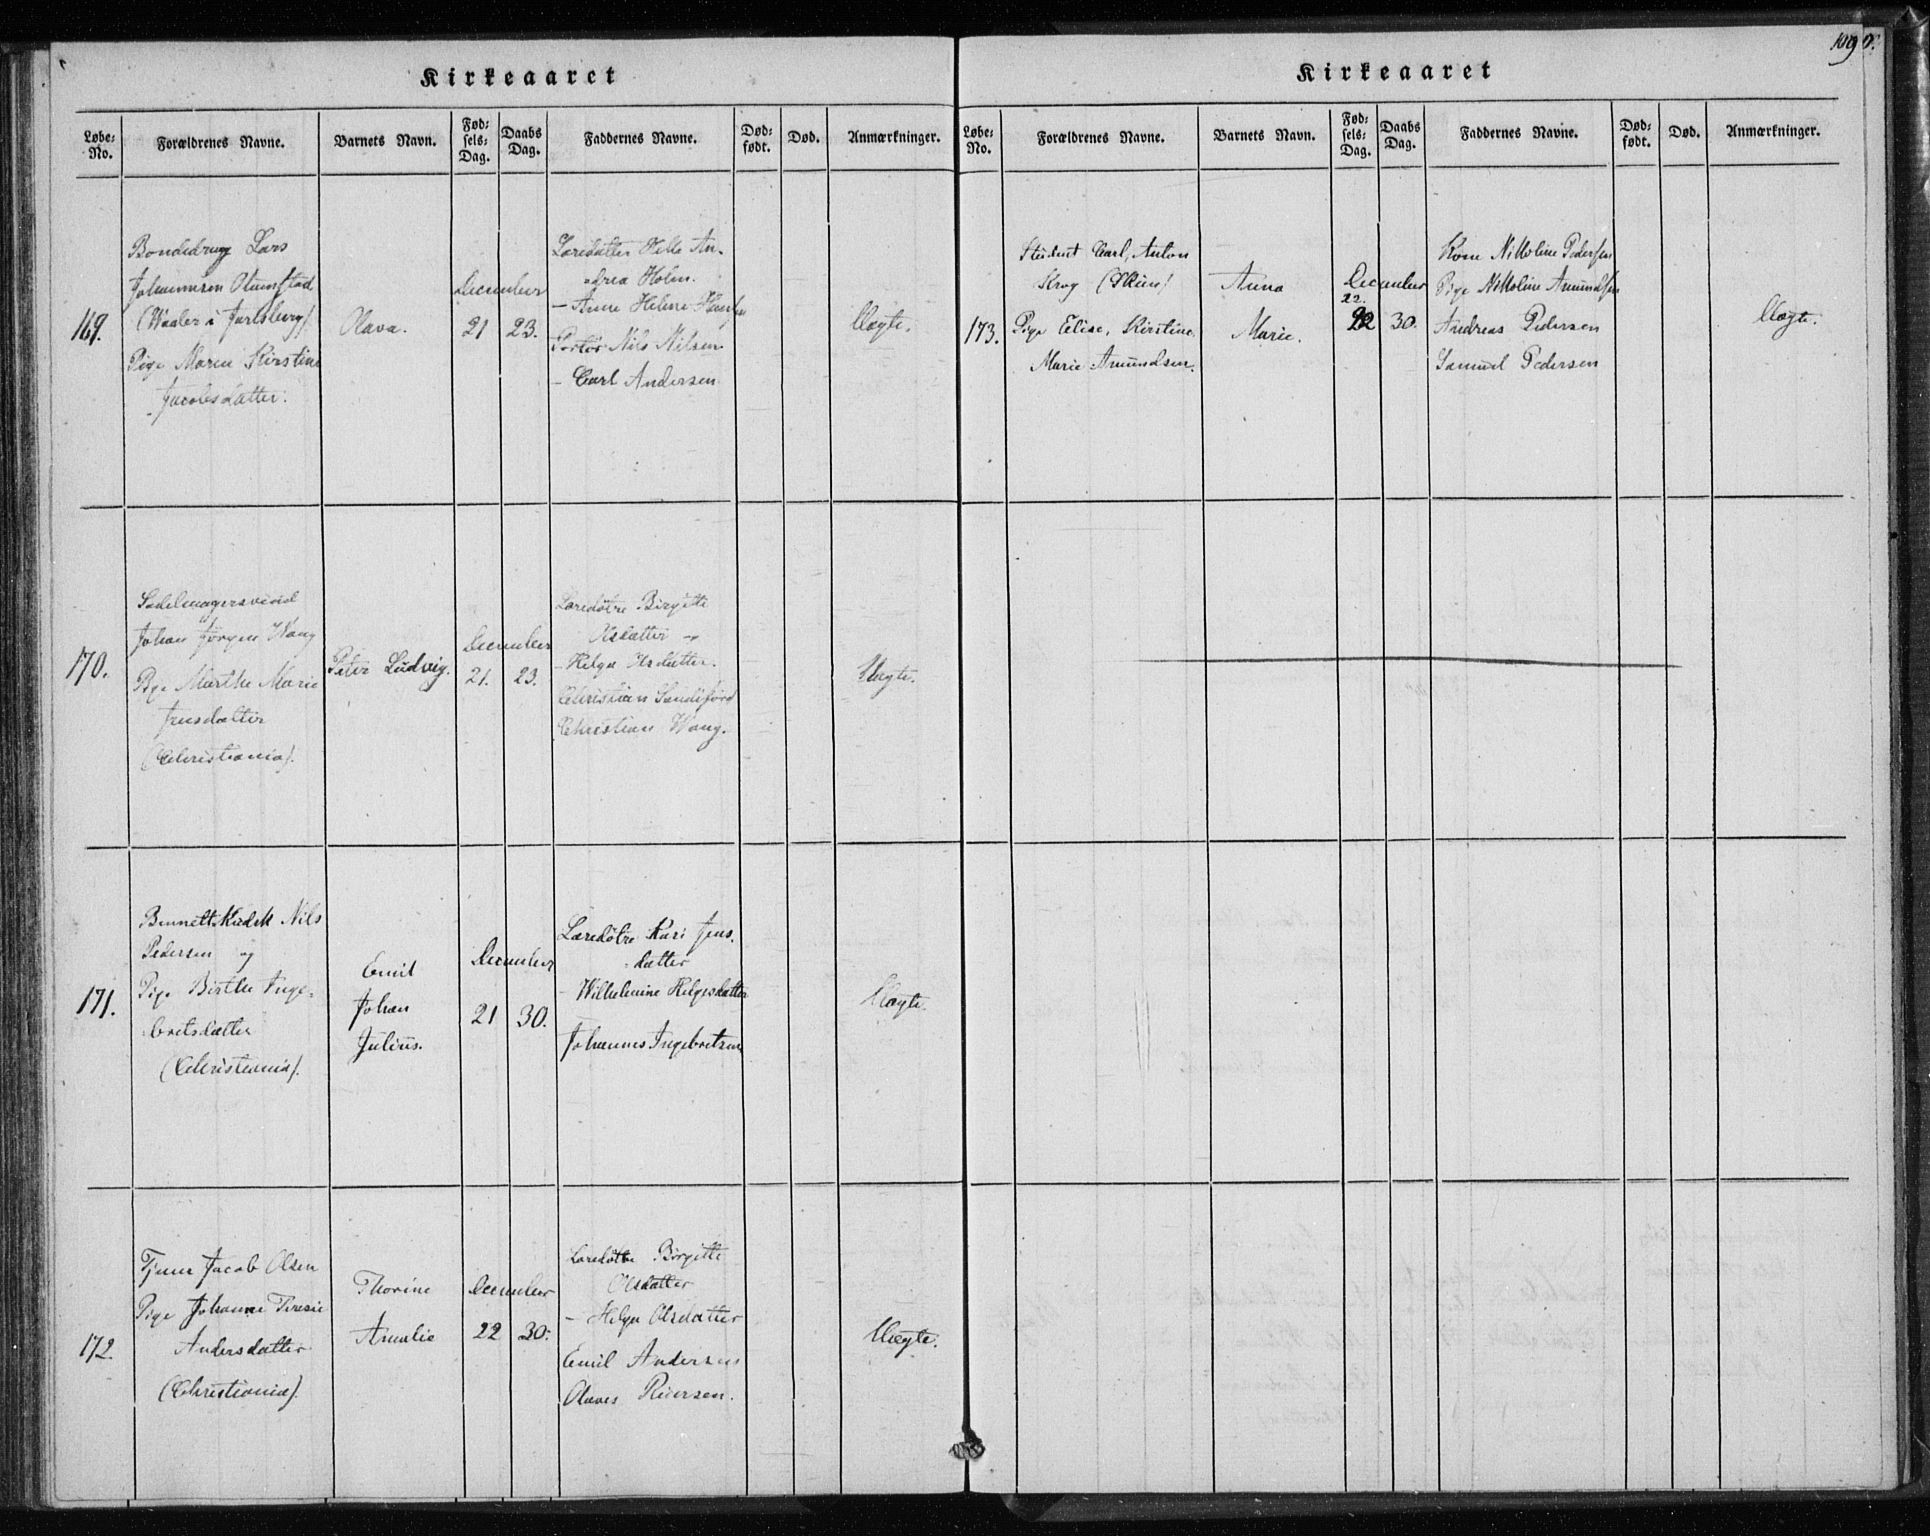 Kirkeaaret
Løbe-No. Forældrenes Navne. Barnets Navn. Fødsels-Dag. Daabs Dag. Faddernes Navne. Dødfødt. Død. Anmærkninger.
169.
Bondedreng Lars
Johannesen
(Waaler i Jarlsberg).
Pige Maren Kirstine
Jacobsdatter.
Olava.
December
21 23.
Helle An-
drea Holm.
- Anne Helene
Portør Nils Nilsen
- Carl Andersen
Uægte.
170.
Sadelmagersvend
Johan Jørgen Wang
Pige Marthe Marie
Jensdatter
(Christiania).
Peter Ludvig.
December
21. 23.
Læredøtre Birgitte
Olsdatter
- Helga Olsdatter.
Christian
Christian Wang.
Uægte.
171.
Nils
Pedersen og
Pige Birthe Inge-
bretsdatter
(Christiania).
Emil
Johan
Julius.
December
21 30.
Læredøtre Kari Jens-
datter
- Wilhelmine Helgesdatter
Johannes Ingebretsen
Uægte.
172.
Jacob Olsen
Pige Johanne Teresie
Andersdatter
(Christiania).
Thorine
Amalie
December
22 30.
Læredøtre Birgitte
Olsdatter
- Helga Olsdatter
Emil Andersen
Olaves
Uægte.
109
Kirkeaaret
Løbe-No. Forældrenes Navne. Barnets Navn. Fødsels-Dag. Daabs Dag. Faddernes Navne. Dødfødt. Død. Anmærkninger.
173.
Student Carl Anton
Krog (Skien)
Pige Elise Kirstine
Marie Amundsen.
Anna
Marie.
December
22.
22 30.
Kone Nikoline Pedersen
Pige Nikoline Amundsen
Andreas Pedersen
Samuel Pedersen
Uægte.